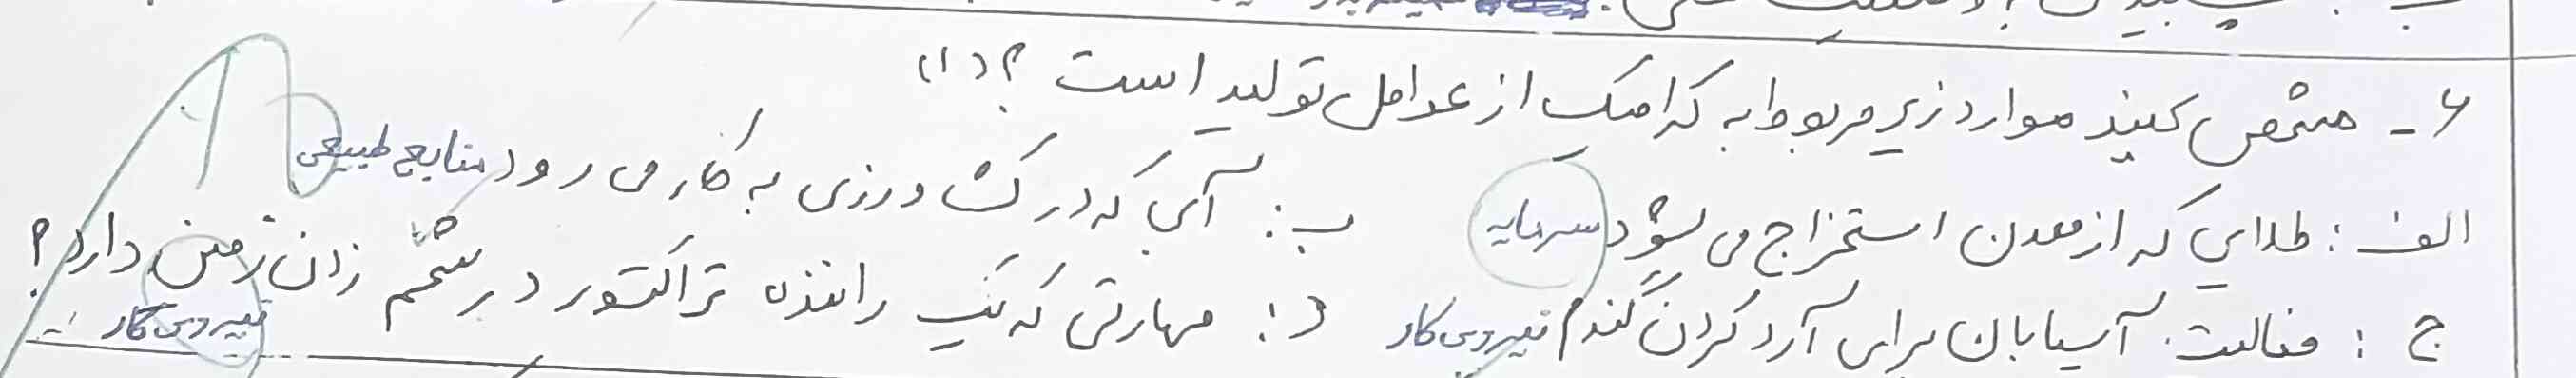 ۶ - مشخص کنید موارد زیر مربوط به کدامیک از عوامل تولید است ؟ (۱)
الف : طلایی که از معدن استخراج می شود سرمایه ب : آبی که در کشاورزی به کار می رود منابع طبیعی
ج : فعالیت آسیابان برای آرد کردن گندم نیروی کار د : مهارتی که یک راننده تراکتور در شخم زدن زمین دارد ؟ نیروی کار